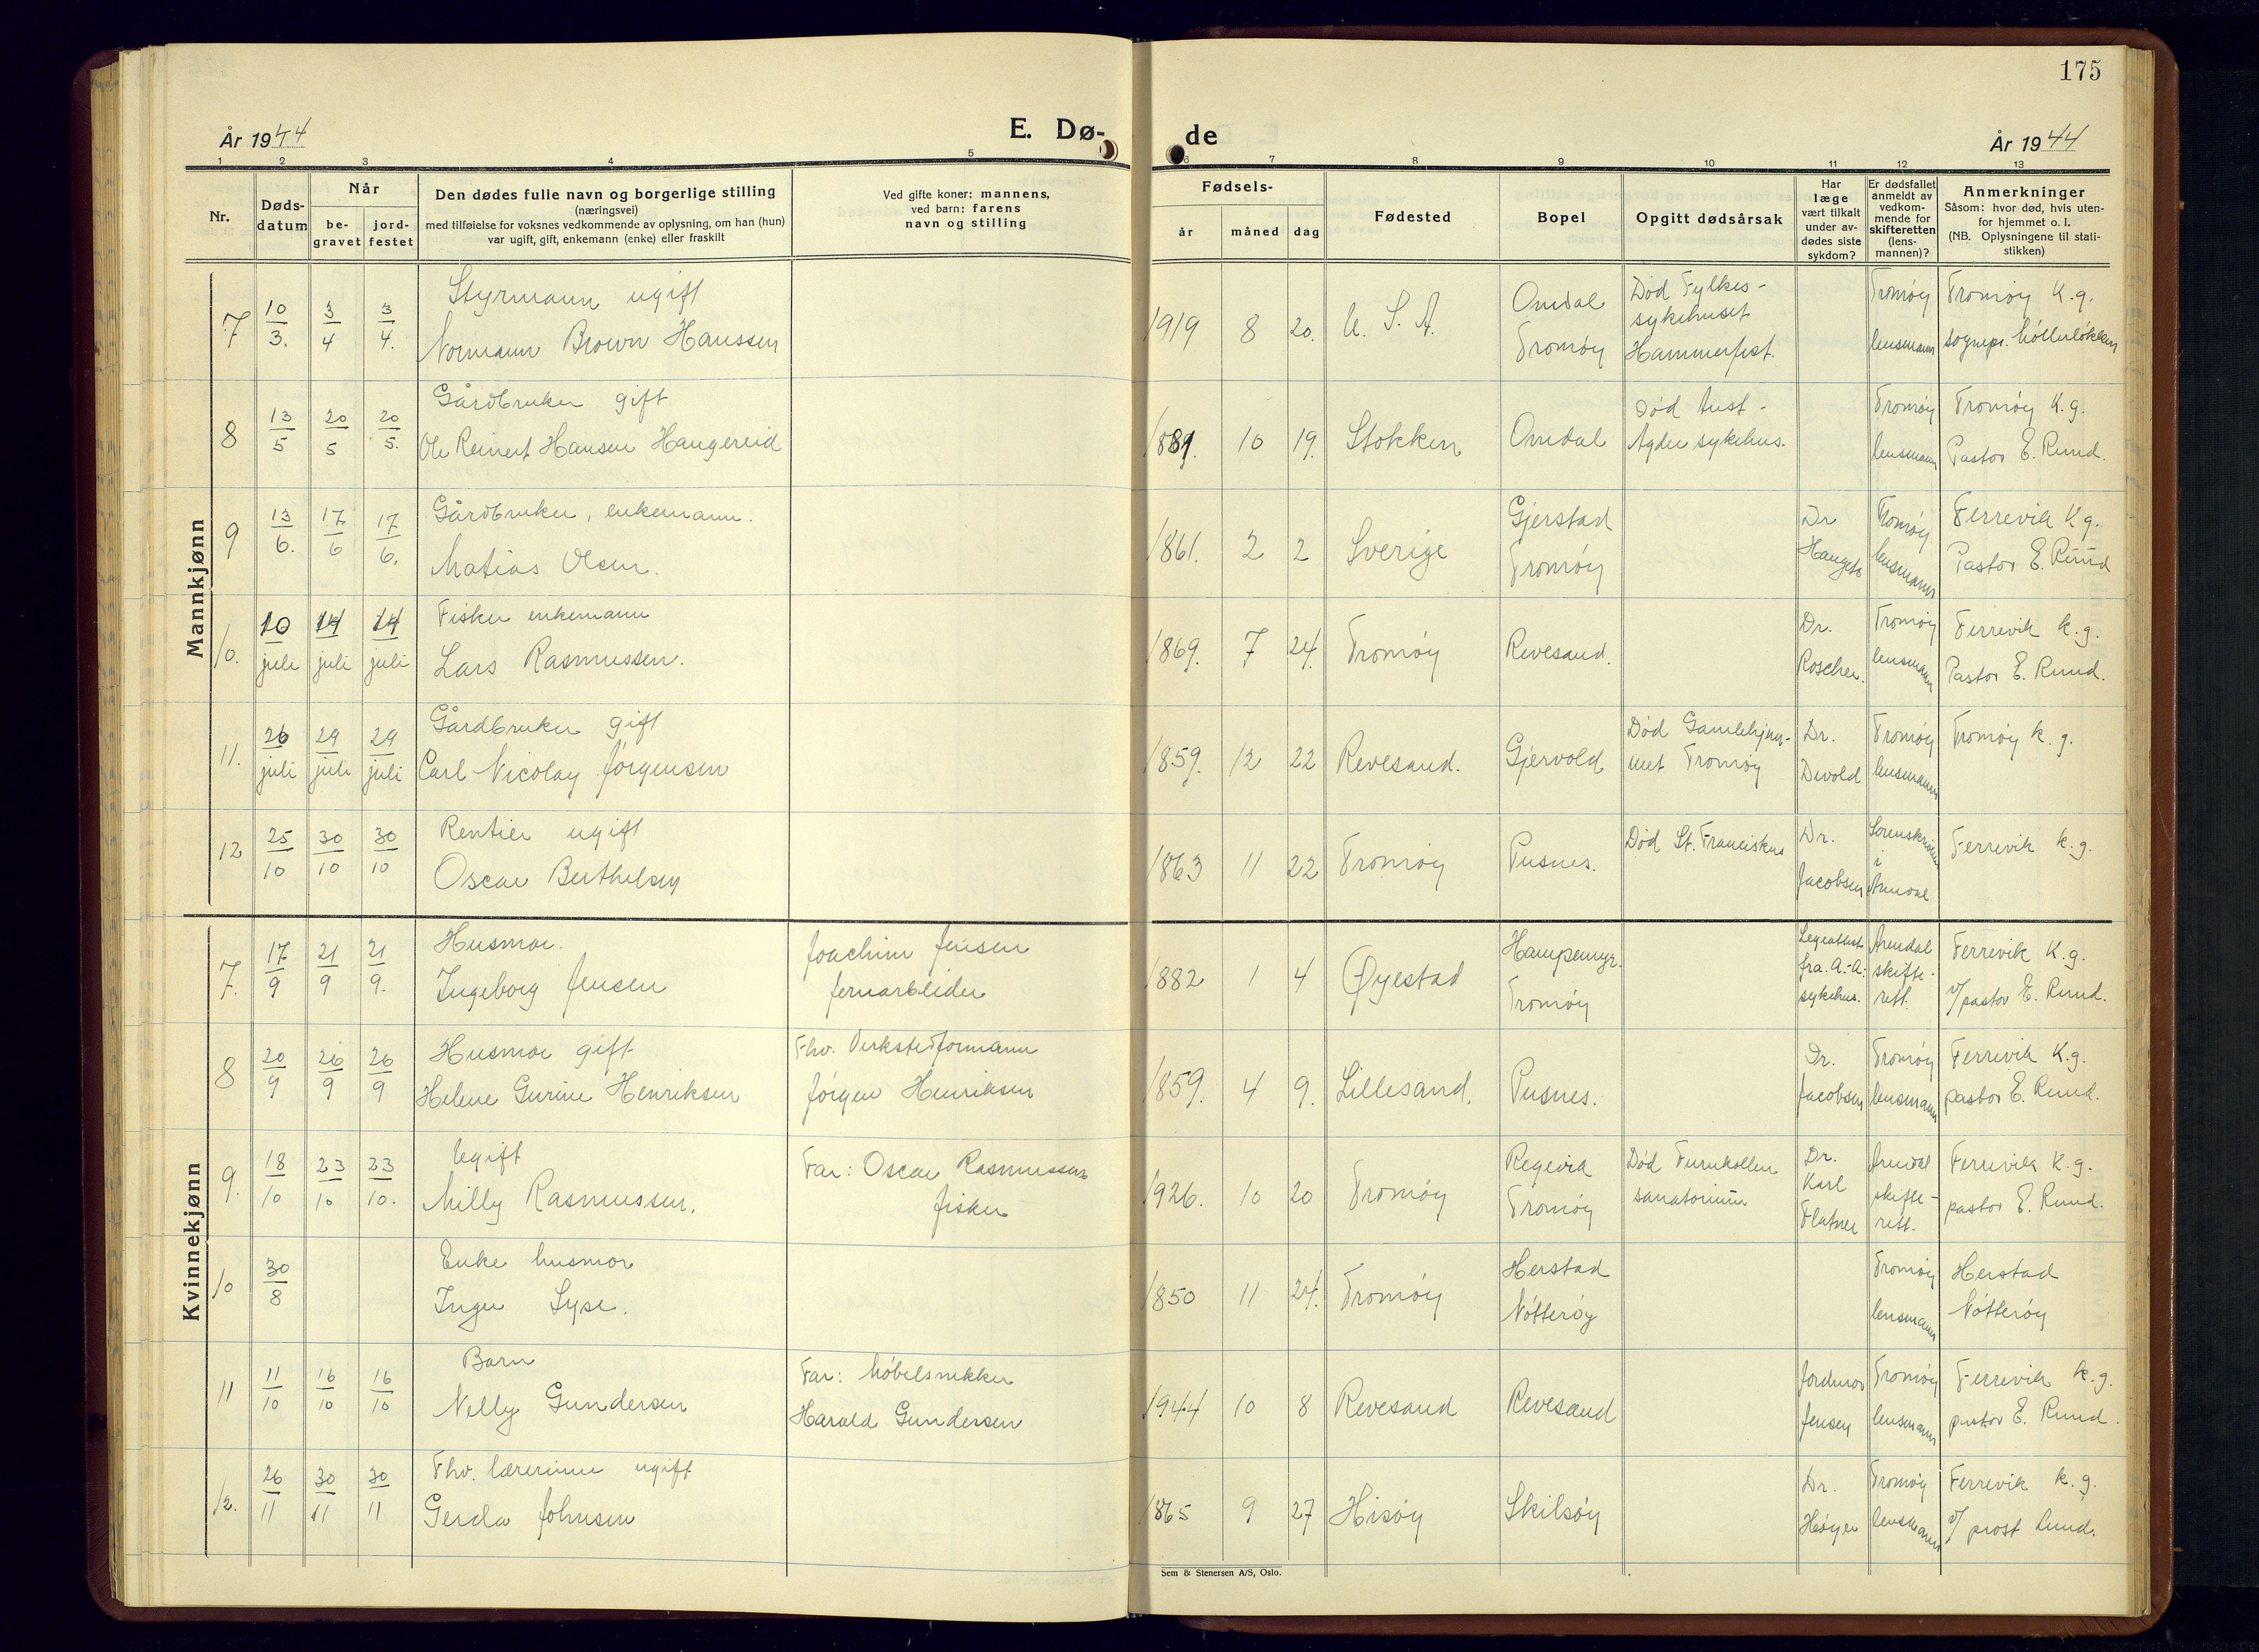 175
År 1944
E. Dø-
de
År 1944
1 2 3 4 5 6 7 8 9 10 11 12 13
Nr.
Døds-
datum
Når
be-
gravet
jord-
festet
Den dødes fulle navn og borgerlige stilling
(næringsvei)
med tilføielse for voksnes vedkommende av oplysning, om han (hun)
var ugift, gift, enkemann (enke) eller fraskilt
Ved gifte koner: mannens,
ved barn: farens
navn og stilling
Fødsels-
år måned dag
Fødested
Bopel
Opgitt dødsårsak
Har
læge
vært tilkalt
under av-
dødes siste
sykdom?
Er dødsfallet
anmeldt av
vedkom-
mende for
skifteretten
(lens-
mannen)?
Anmerkninger
Såsom: hvor død, hvis uten-
for hjemmet o. l.
(NB. Oplysningene til stati-
stikken)
Mannkjønn
7 10/3. 3/4 3/4.
Styrmann ugift
Normann Brown Hanssen
1919 8 20. U. S. A.
Omdal
Tromøy
Død Fylkes-
sykehuset
Hammerfest.
Tromøy
lensmann
Tromøy K.g.
sognepr. Møllerløkken
8 13/5 20/5 20/5.
Gårdbruker gift
Ole Reinert Hansen Haugereid
1889. 10 19. Stokken
Omdal
Død Aust-
Agder sykehus.
Tromøy
lensmann
Tromøy K.g.
Pastor E. Rund.
9 13/6. 17/6 17/6.
Gårdbruker, enkemann.
Matias Olsen.
1861. 2 2 Sverige
Gjerstad
Tromøy
Dr
Haugeto
Tromøy
lensmann
Færevik K.g.
Pastor E. Rund
10. 10 juli 14 juli 14 juli
Fisker enkemann
Lars Rasmussen.
1869. 7 24. Tromøy
Revesand.
Dr.
Roscher.
Tromøy
lensmann
Færevik k.g.
Pastor E. Rund.
11. 26 juli 29 juli 29 juli
Gårdbruker gift
Carl Nicolay Jørgensen
1859. 12 22 Revesand.
Gjervold
Død Gamlehjem-
met Tromøy
Dr.
Devold
Tromøy
lensmann
Tromøy k.g.
12 25/10 30/10 30/10
Rentier ugift
Oscar Berthelsen
1863 11 22 Tromøy
Pusnes.
Død St. Franciskus
Dr.
Jacobsen
Sorenskriver
i
Arendal
Færevik k.g.
Kvinnekjønn
7. 17/9 21/9 21/9.
Husmor.
Ingeborg Jensen
Joachim Jensen
jernarbeider
1882 1 4 Øyestad
Hampemyr.
Tromøy
Legeattest
fra A.-A.
sykehus.
Arendal
skifte-
rett.
Færevik K.g.
v/pastor E. Rund.
8 20/9 26/9 26/9
Husmor gift
Helene Gurine Henriksen
Fhv. Verkstedformann
Jørgen Henriksen
1859. 4 9. Lillesand.
Pusnes.
Dr.
Jacobsen
Tromøy
lensmann
Færevik K.g.
pastor E. Rund.
9. 18/10 23/10 23/10.
Ugift
Milly Rasmussen.
Far: Oscar Rasmussen
fisker
1926. 10 20 Tromøy
Regevik
Tromøy
Død Furukollen
sanatorium
Dr.
Karl
Arendal
skifte-
rett.
Færevik K.g.
pastor E. Rund.
10 30/8
Enke husmor
Inger Lyse.
1850 11 24. Tromøy
Herstad
Nøtterøy
Tromøy
lensmann
Herstad
Nøtterøy
11 11/10 16/10 16/10
Barn
Nelly Gundersen
Far: Møbelsnekker
Harald Gundersen
1944 10 8 Revesand
Revesand
Jordmor
Jensen
Tromøy
lensmann
Færevik k.g.
pastor E. Rund.
12. 26/11 30/11 30/11
Fhv. lærerinne ugift
Gerda Johnsen
1865 9 27 Hisøy
Skilsøy
Dr.
Høyer
Tromøy
lensmann
Færevik k.g.
v/ prost Lund.
Sem & Stenersen A/S, Oslo.